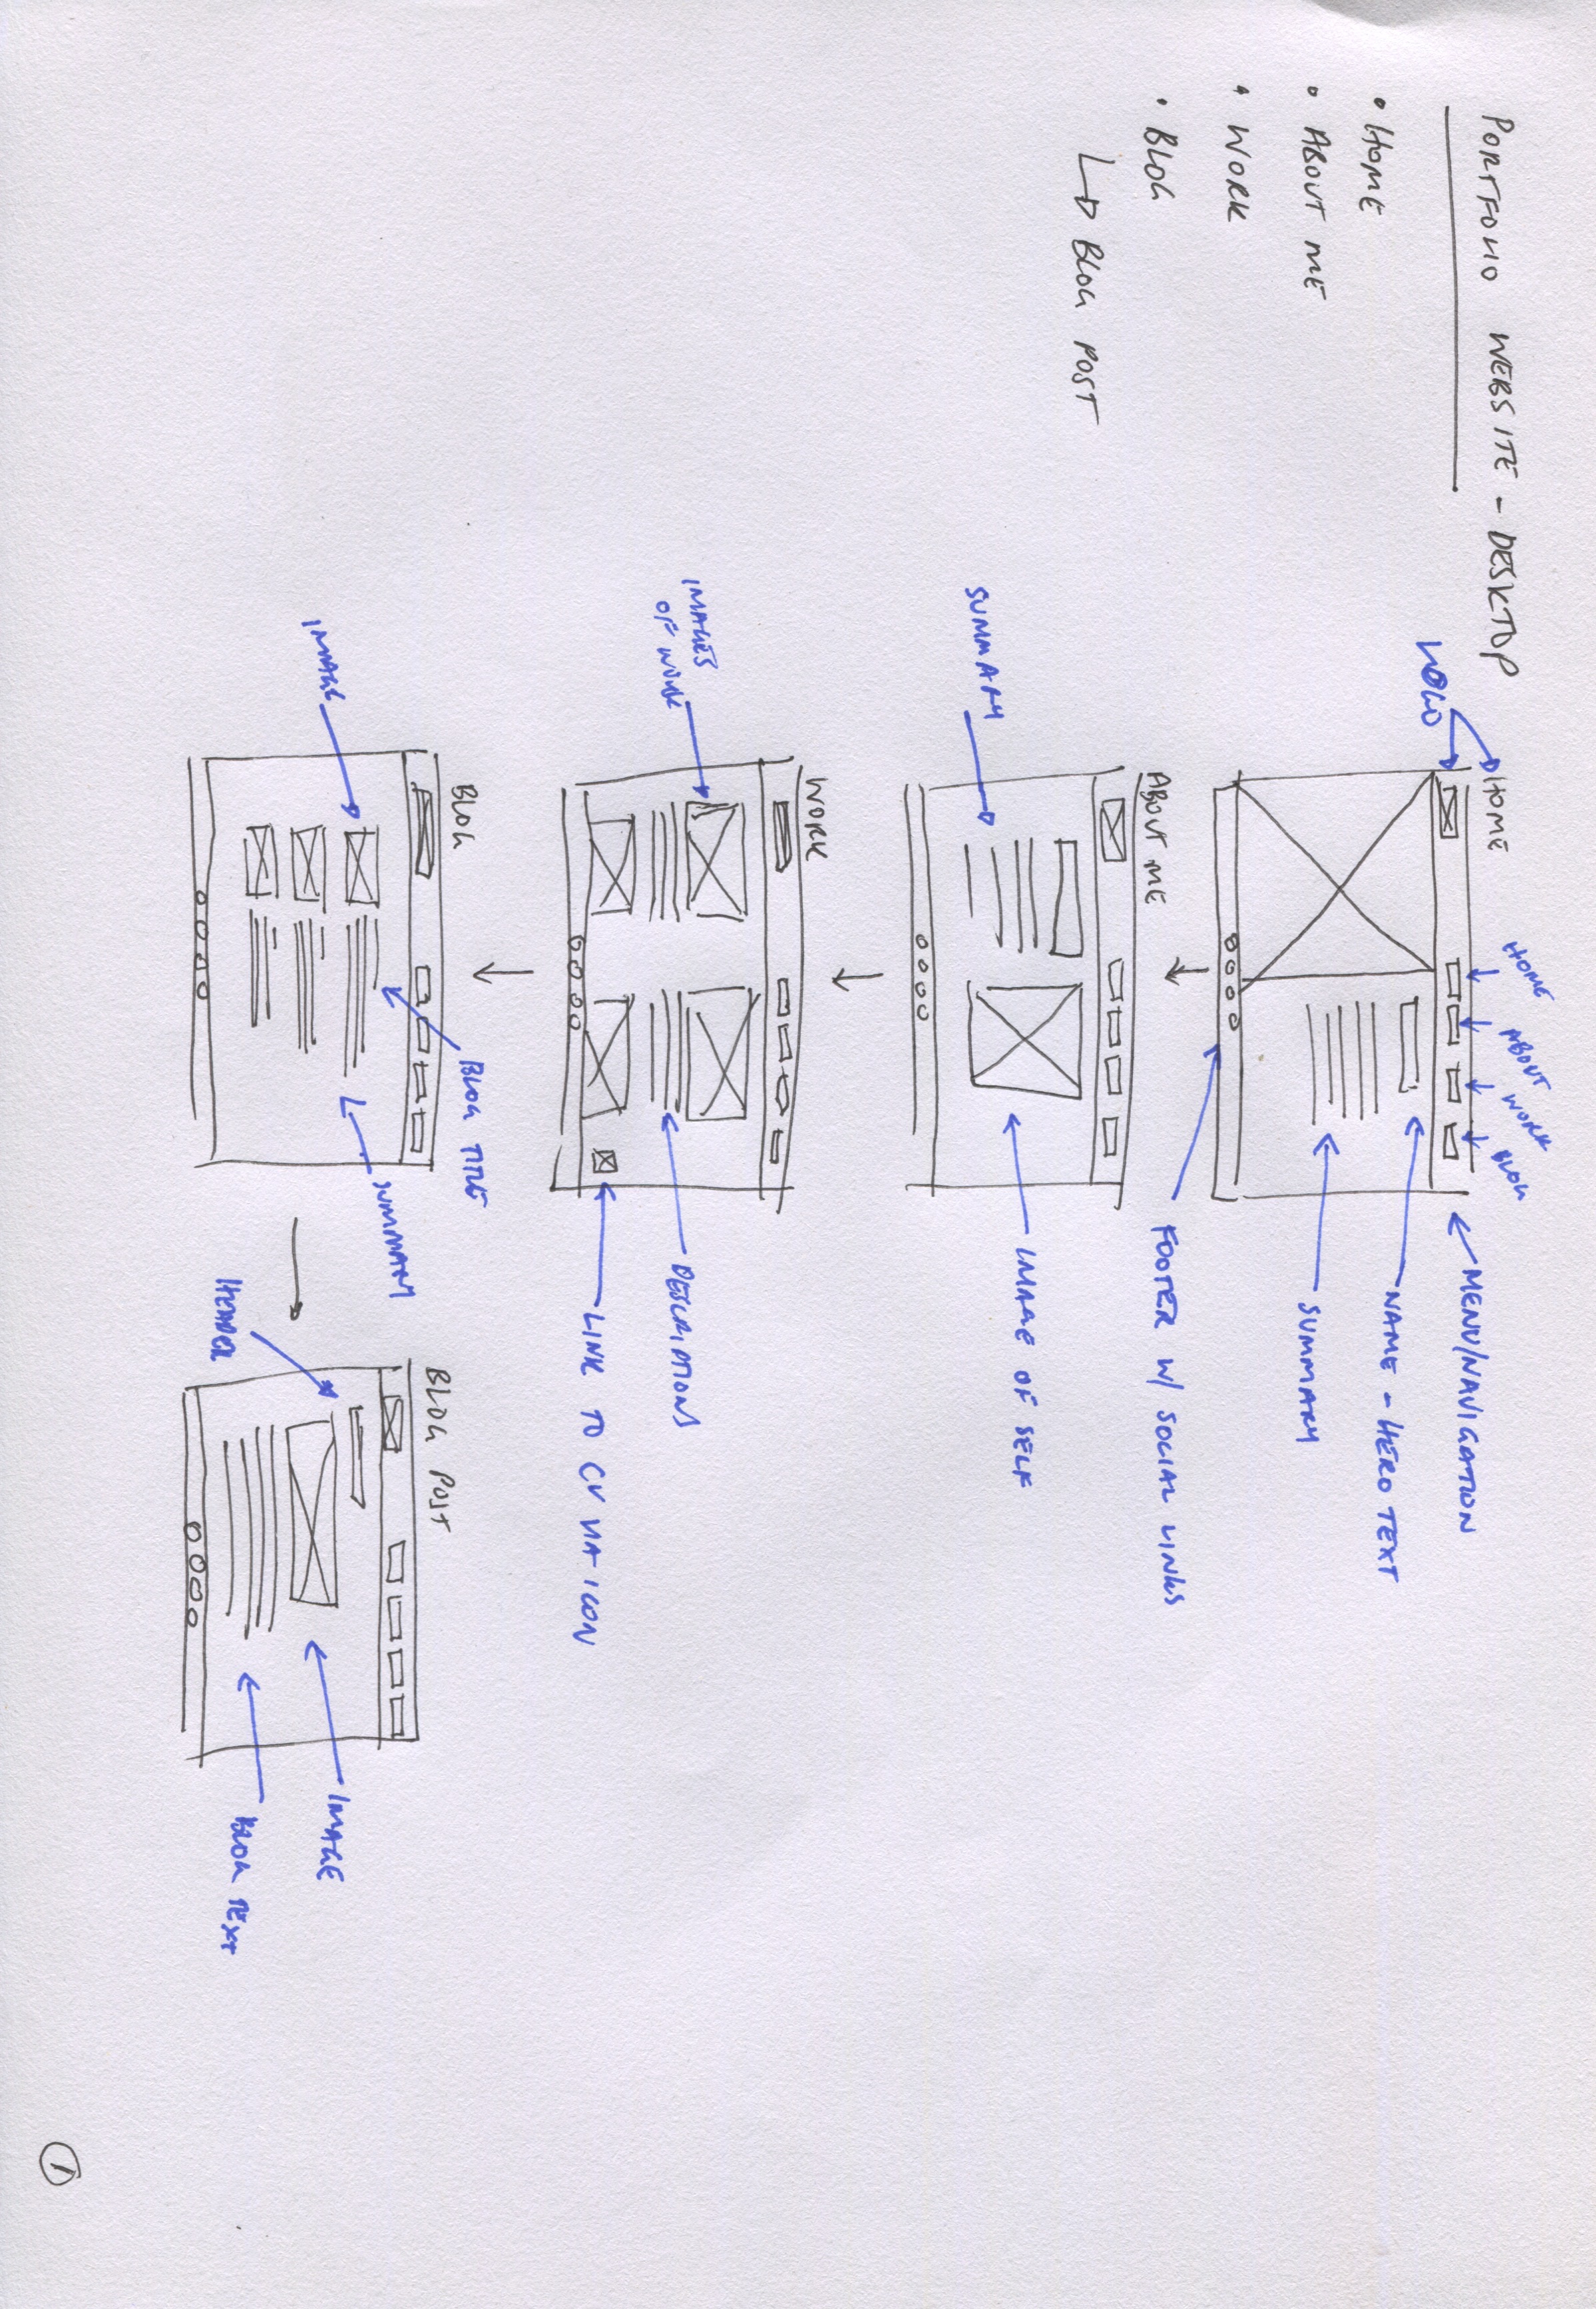 PORTFOLIO WEBSITE - DESKTOP
• HOME
• ABOUT ME
• WORK
• BLOG
BLOG POST
HOME
HOME
ABOUT
WORK
BLOG
LOGO
MENU/NAVIGATION
NAME - HERO TEXT
SUMMARY
FOOTER W/ SOCIAL LINKS
ABOUT ME
SUMMARY
IMAGE OF SELF
WORK
IMAGES
OF WORK
DESCRIPTIONS
LINK TO CV VIA ICON
BLOG
BLOG TITLE
SUMMARY
IMAGE
BLOG POST
IMAGE
HEADER
BLOG TEXT
1